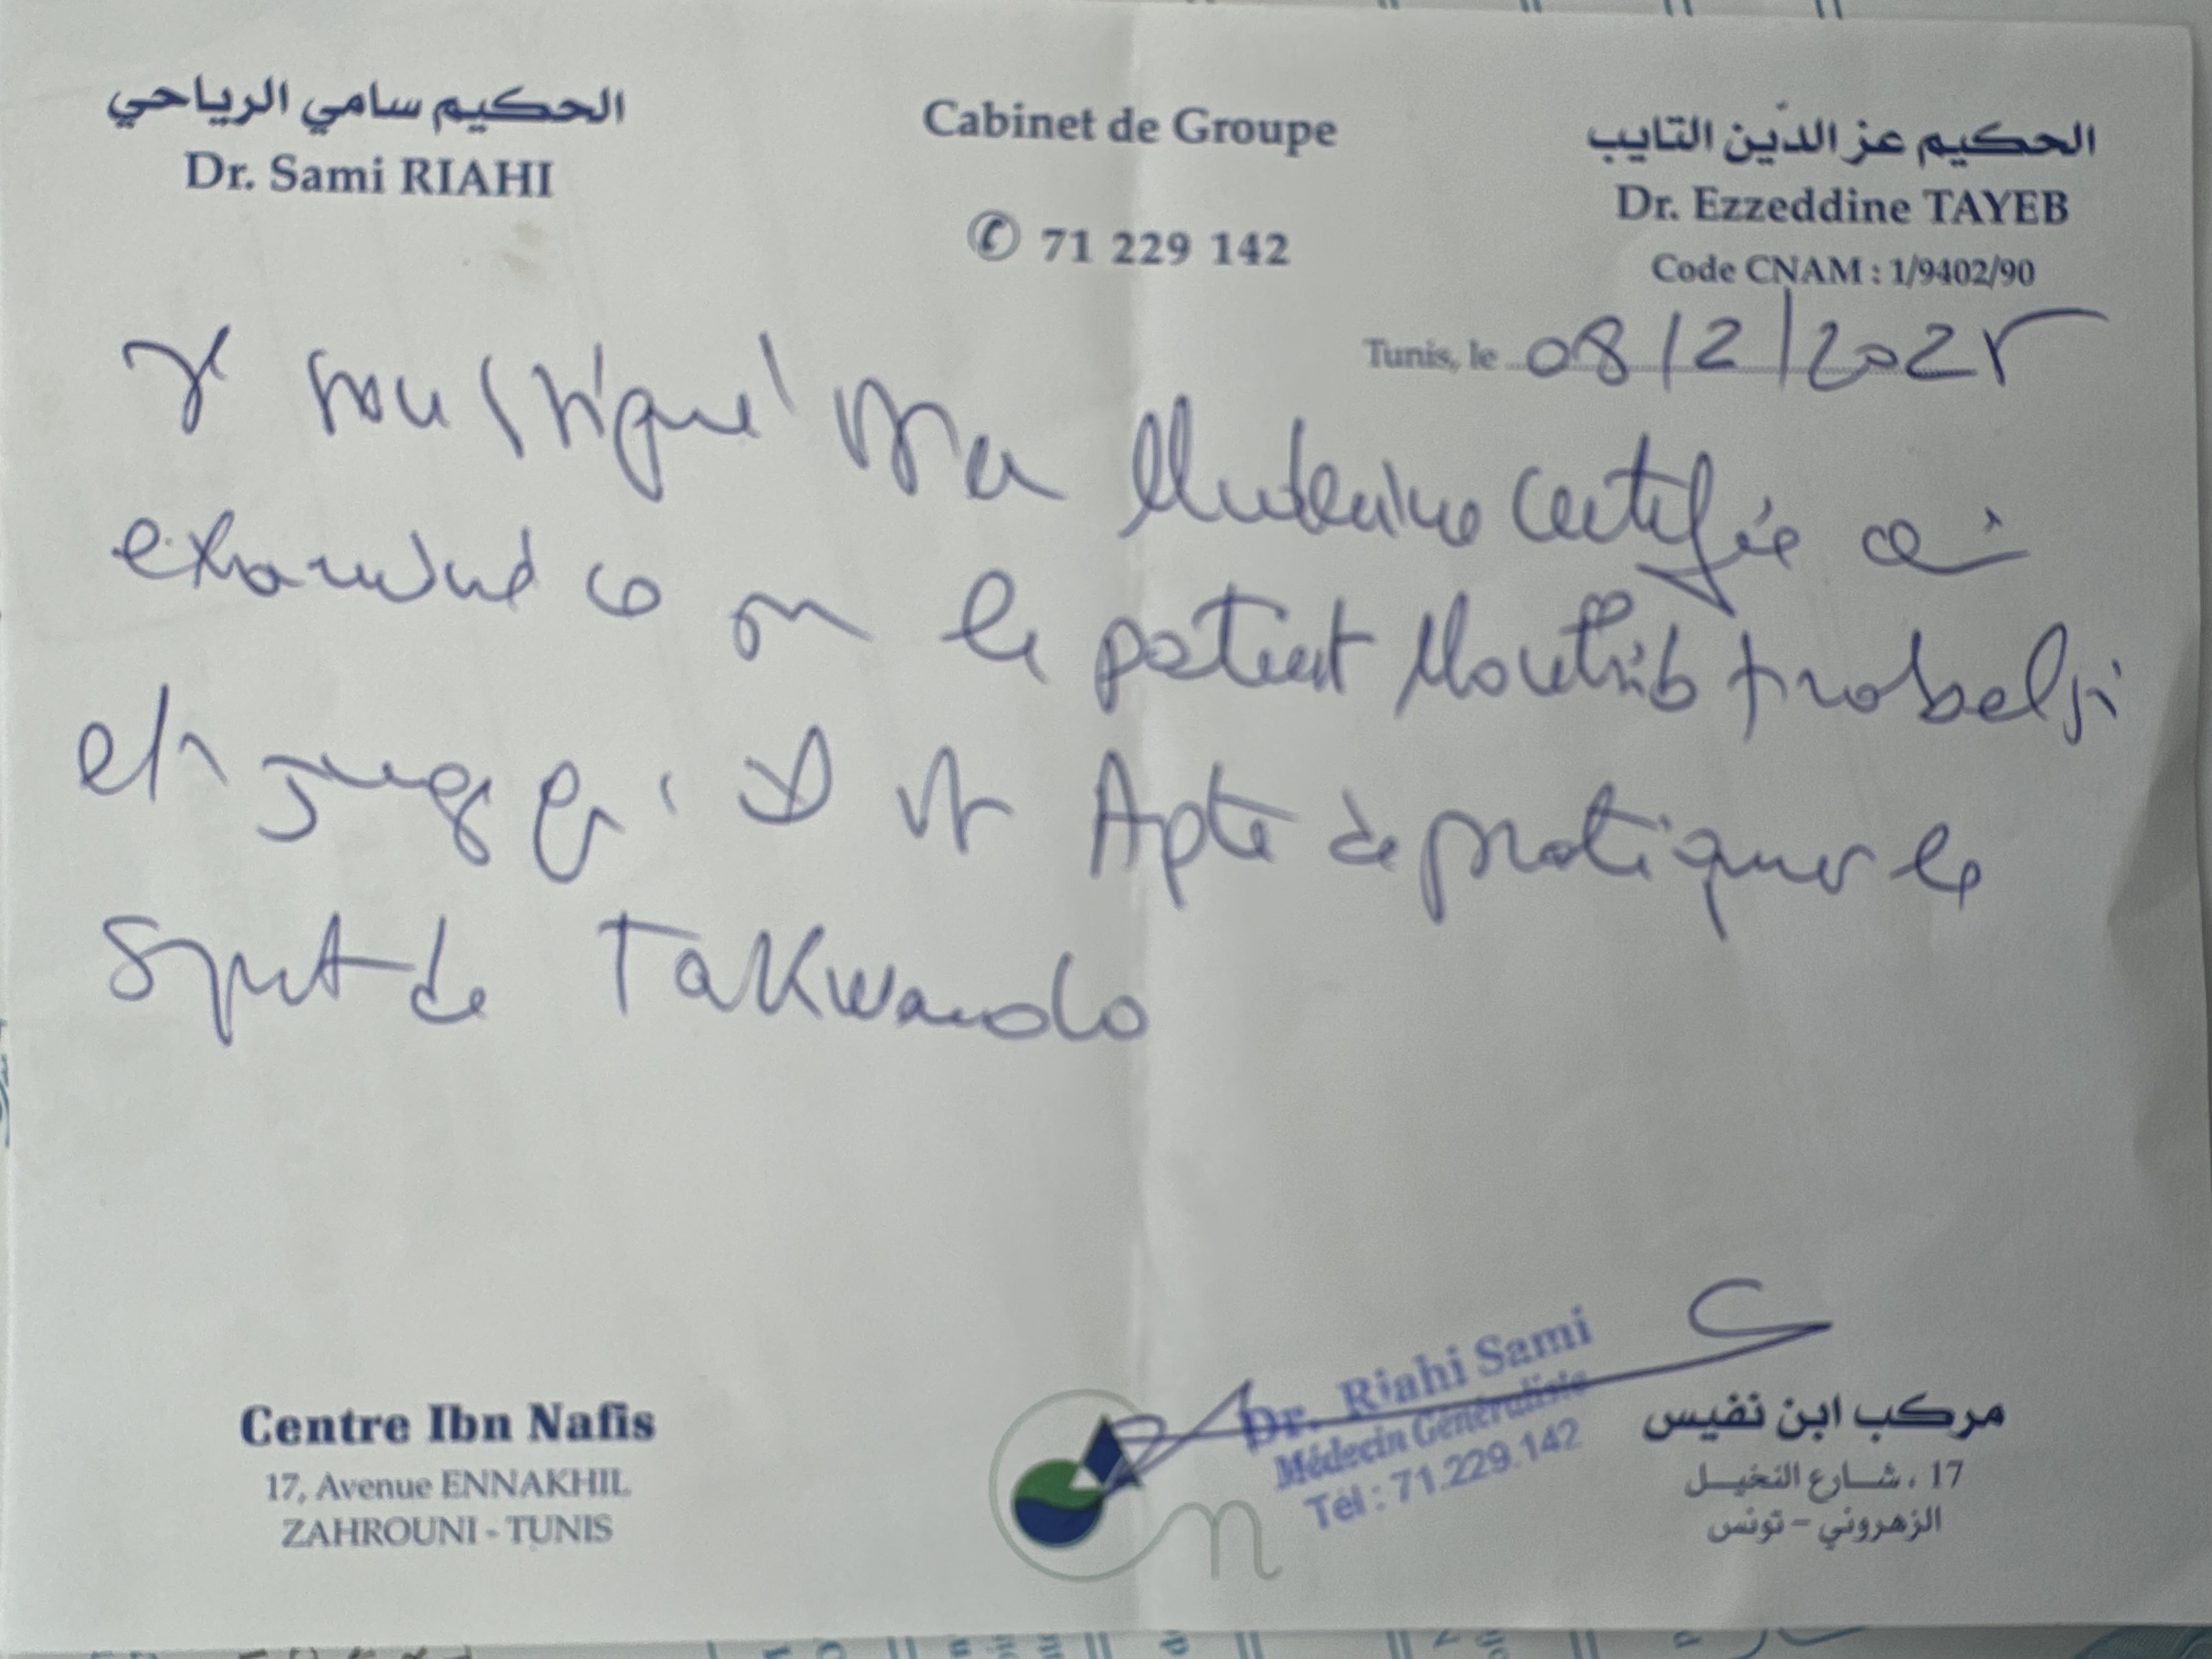 الحكيم سامي الرياحي
Dr. Sami RIAHI
Cabinet de Groupe
✆ 71 229 142
الحكيم عز الدّين التايب
Dr. Ezzeddine TAYEB
Code CNAM : 1/9402/90
Tunis, le 08/2/2025
Je soussigné certifie
le patient trabelsi
et juge qu'il est Apte de pratiquer le
Sport de Takwando
Dr. Riahi Sami
Médecin Généraliste
Tél : 71.229.142
Centre Ibn Nafis
17, Avenue ENNAKHIL
ZAHROUNI - TUNIS
مركب ابن نفيس
17 ، شارع النخيل
الزهروني - تونس